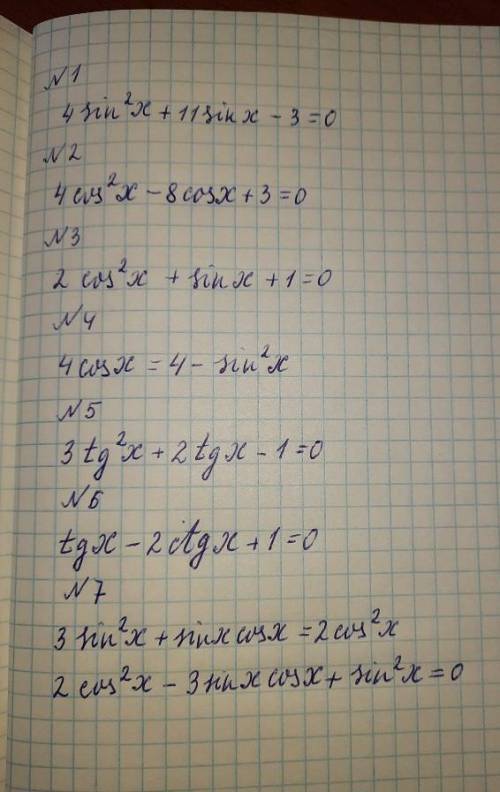 N1
4 sin²x + 11 sin x - 3 = 0
N2
4 cos²x - 8 cos x + 3 = 0
N3
2 cos²x + sin x + 1 = 0
N4
4 cos x = 4 - sin²x
N5
3 tg²x + 2 tg x - 1 = 0
N6
tg x - 2 ctg x + 1 = 0
N7
3 sin²x + sin x cos x = 2 cos²x
2 cos²x - 3 sin x cos x + sin²x = 0